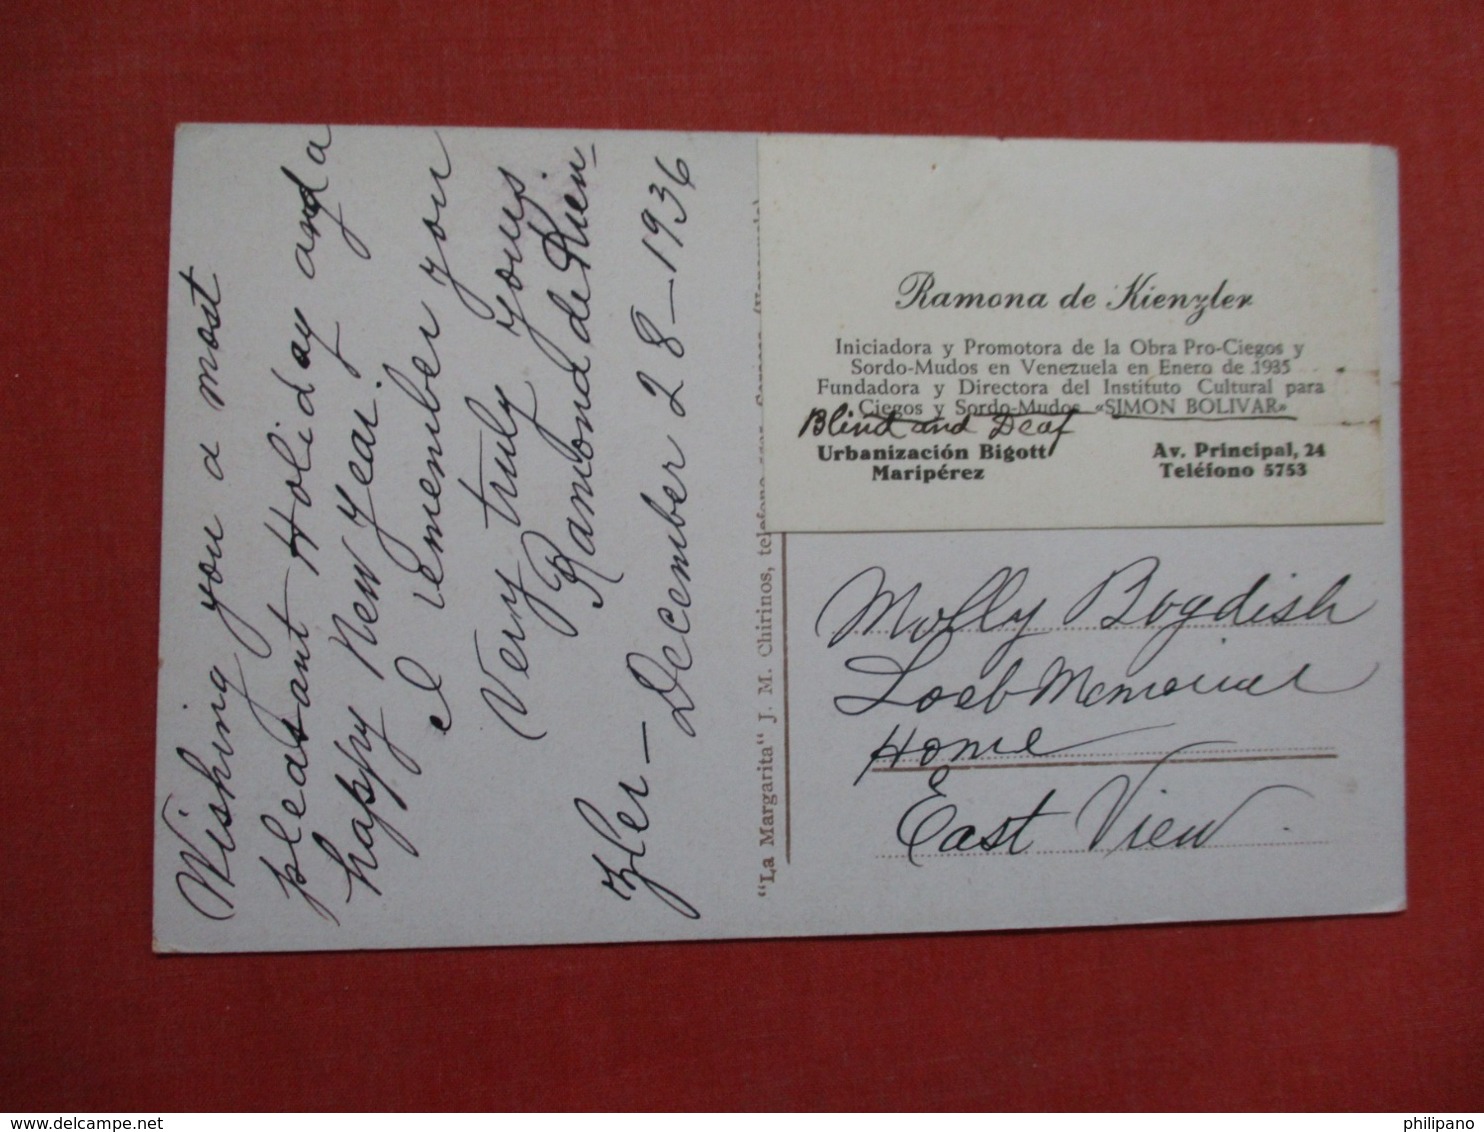 Wishing you a most
pleasant Holiday and a
happy New Year!
I remember you
Very truly yours.
Ramona de Kien-
zler — December 28 — 1936
"La Margarita" J. M. Chirinos, telefono
Ramona de Kienzler
Iniciadora y Promotora de la Obra Pro-Ciegos y
Sordo-Mudos en Venezuela en Enero de 1935
Fundadora y Directora del Instituto Cultural para
Ciegos y Sordo-Mudos «SIMON BOLIVAR»
Blind and Deaf
Urbanización Bigott Av. Principal, 24
Maripérez Teléfono 5753
Molly Bogdish
Loeb Memorial
Home
East View
http://www.delcampe.net
philipano